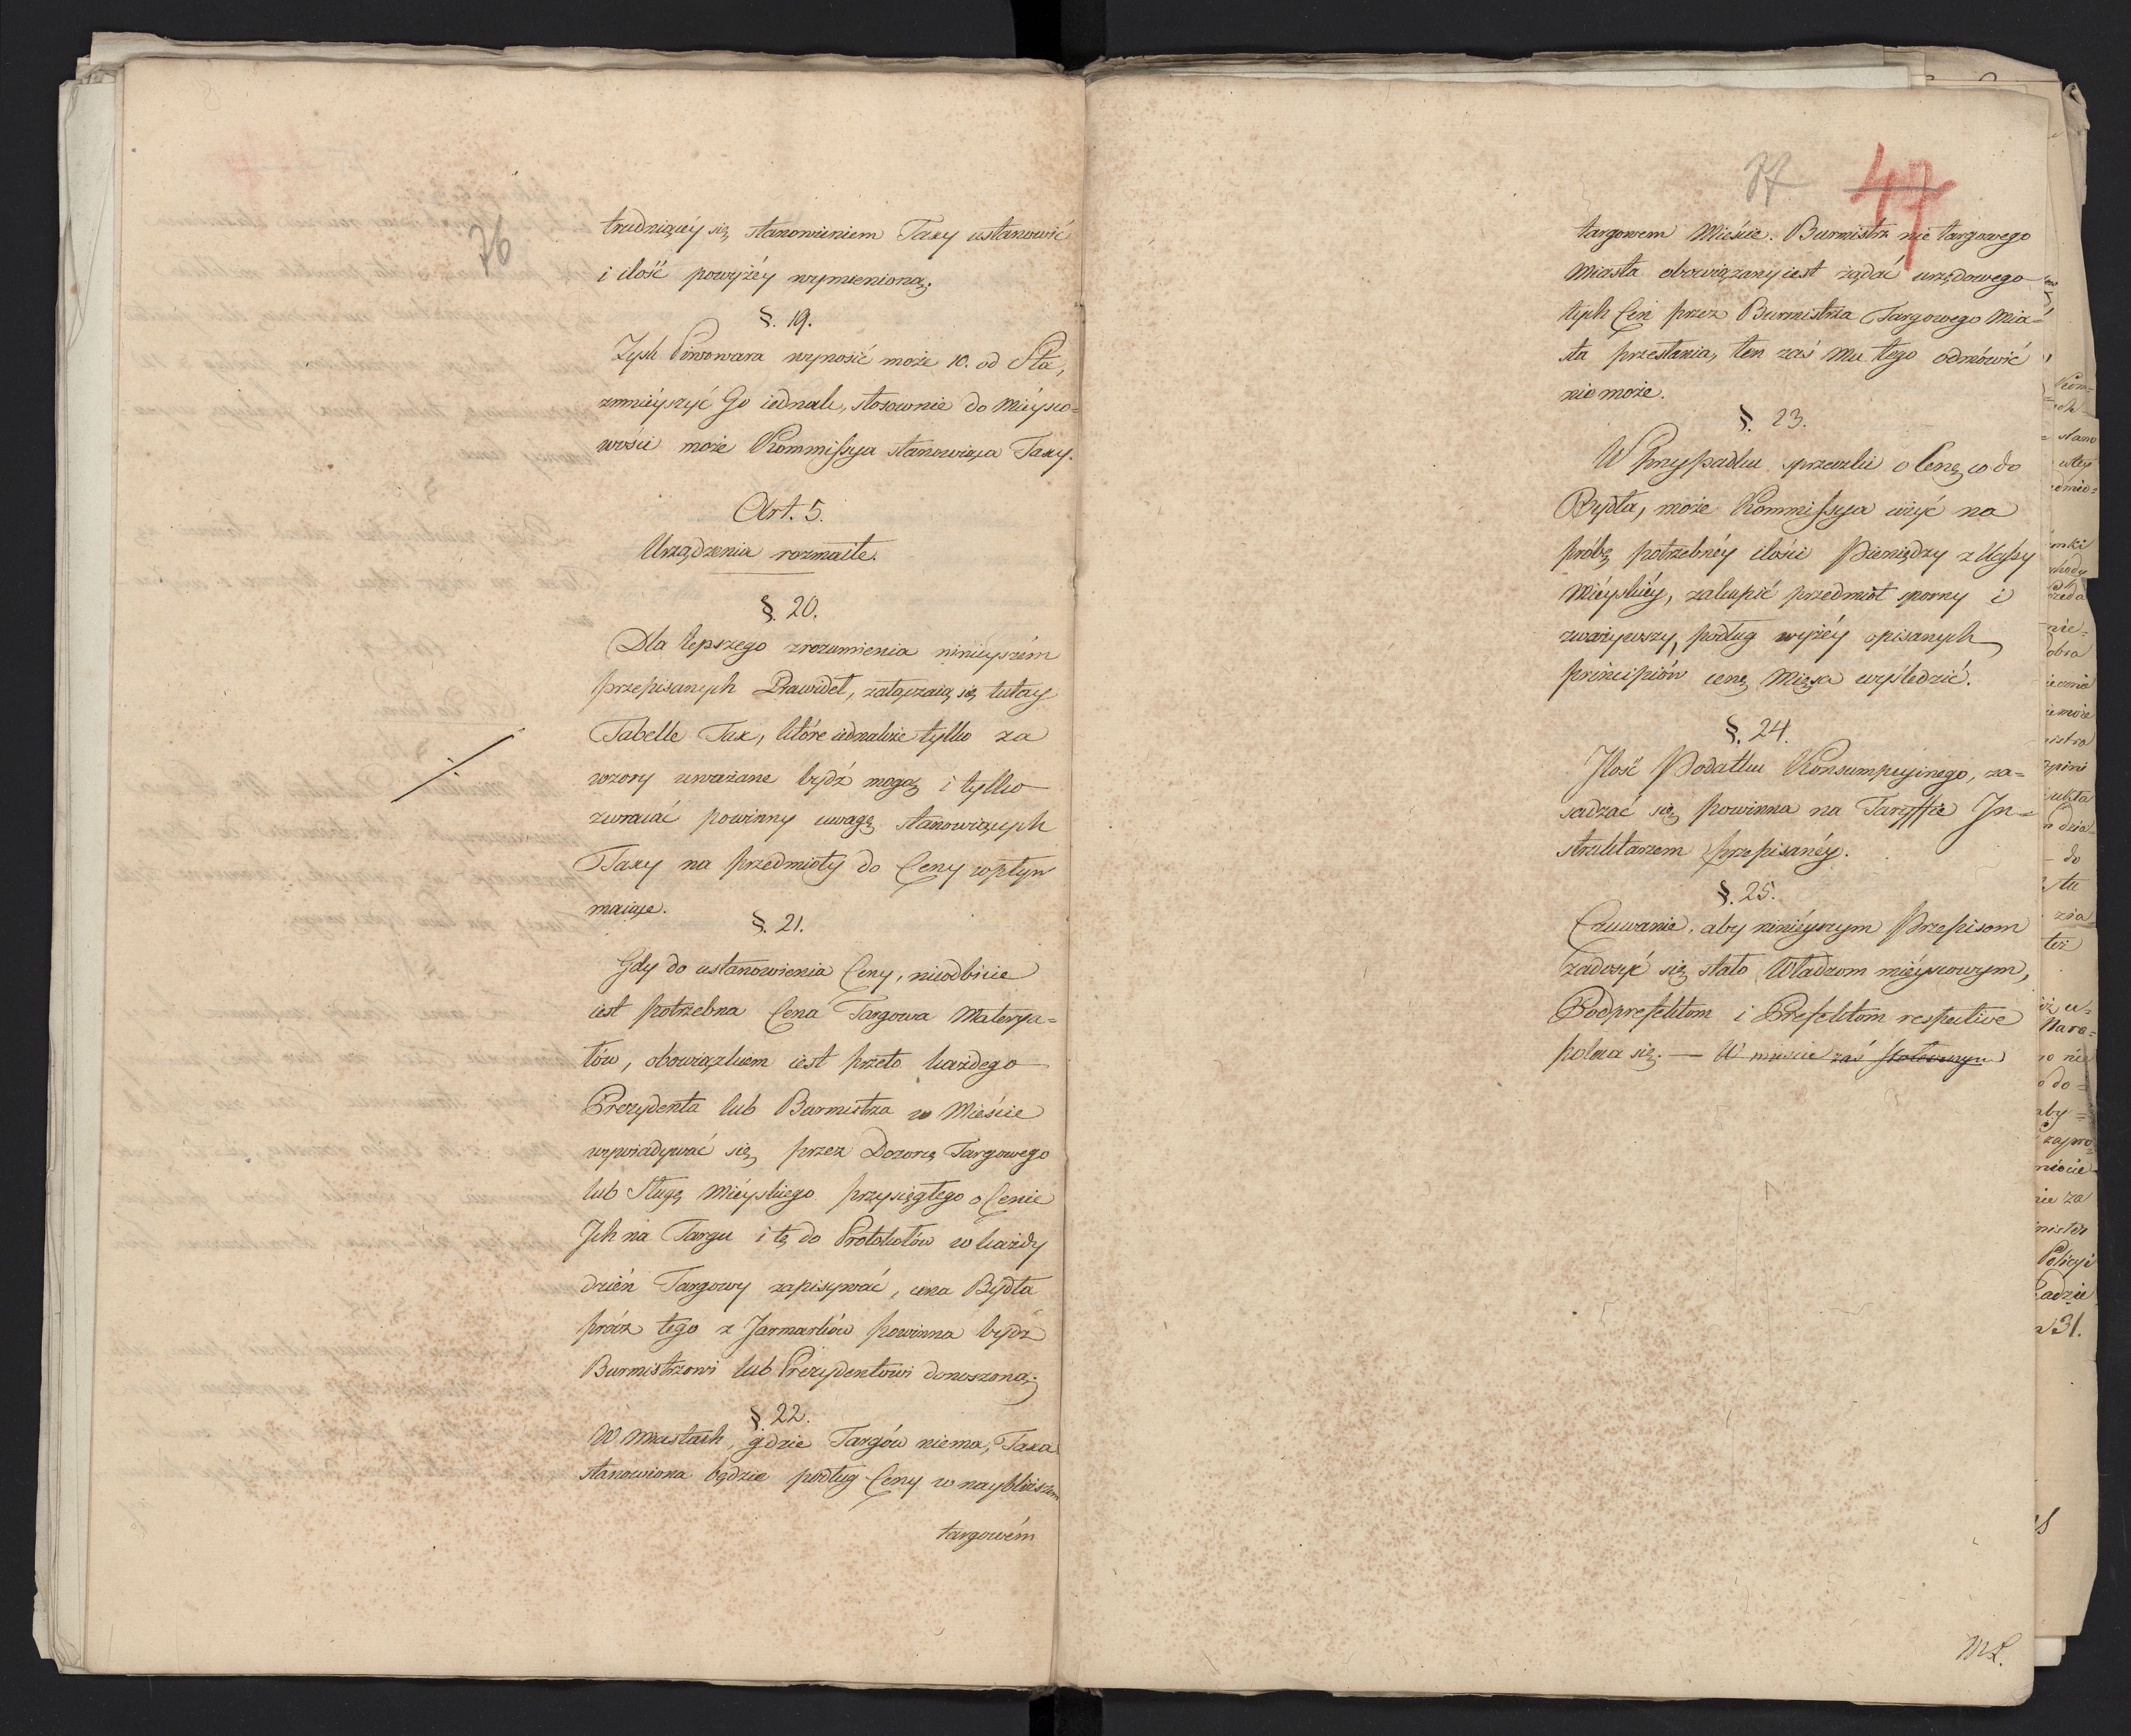 26
trudniącéy się stanowieniem Taxy ustanowić
i ilość powyżéy wymienioną.
§. 19.
Zysk Piwowara wynosić może 10. od Sta,
zmnieyszyć Go iednak, stosownie do mieysco=
wości może Kommissya stanowiąca Taxy.
Art. 5.
Urządzenia rozmaite.
§. 20.
Dla lepszego zrozumienia ninieyszém
przepisanych Prawideł, załączaią się tutay
Tabelle Tax, które iednakże tylko za
wzory uważane bydź mogą i tylko
zwracać powinny uwagę stanowiących
Taxy na przedmioty do Ceny wpływ
maiące.
§. 21.
Gdy do ustanowienia Ceny, nieodbicie
iest potrzebna Cena Targowa Materya=
łów, obowiązkiem iest przeto każdego
Prezydenta lub Burmistrza w Mieście
wywiadywać się, przez Dozorcę Targowego
lub Sługę Mieyskiego przysięgłego o Cenie
Ich na Targu i tę do Protokołów w każdy
dzień Targowy zapisywać, cena Bydła
prócz tego z Jarmarków powinna bydź
Burmistrzowi lub Prezydentowi donoszoną.
§. 22.
W miastach, gdzie Targów niema, Taxa
stanowiona będzie podług Ceny w naybliższem
targowém
37 47
targowem Mieście. Burmistrz nie targowego
Miasta obowiązany iest żądać urzędowego
tych Cen przez Burmistrza Targowego Mia=
sta przesłania, ten zaś mu tego odmówić
nie może.
§. 23.
W Przypadku sprzeczki o Cenę co do
Bydła, może Kommissya użyć na
próbę potrzebnéy ilości Pieniędzy z Kassy
Mieyskiéy, zakupić przedmiot sporny i
zważywszy, podług wyżéy opisanych
principiów cenę Mięsa wyśledzić.
§. 24.
Ilość Podatku Konsumpcyinego, za=
sadzać się powinna na Taryffie In=
struktarzem przepisanéy.
§. 25.
Czuwanie, aby ninieyszym Przepisom
zadosyć się stało Władzom mieyscowym,
Podprefektom i Prefektom respective
poleca się. — W mieście zaś stołecznym
MS.